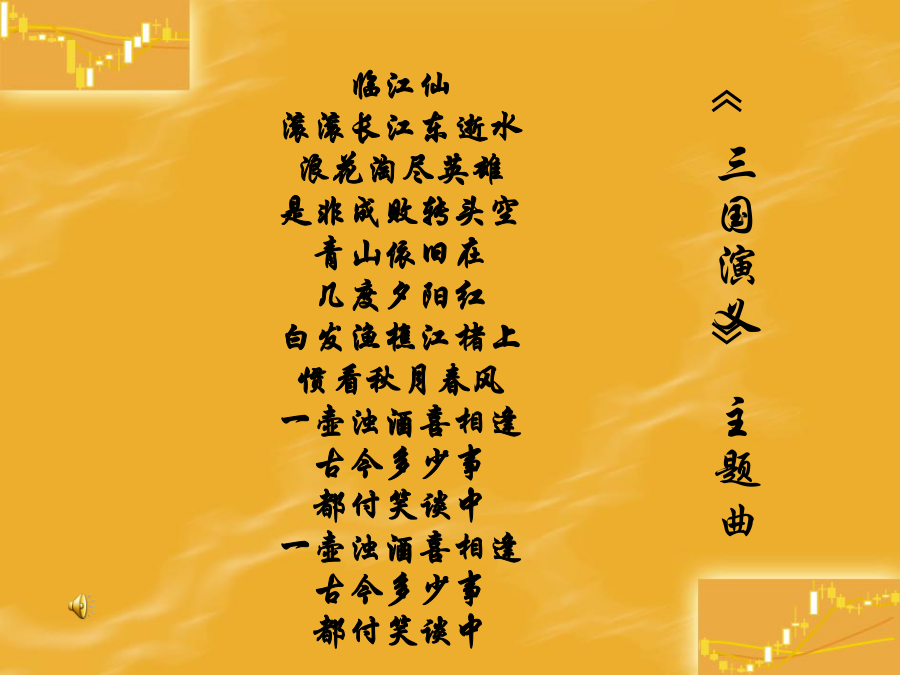 临江仙
滚滚长江东逝水
浪花淘尽英雄
是非成败转头空
青山依旧在
几度夕阳红
白发渔樵江楮上
惯看秋月春风
一壶浊酒喜相逢
古今多少事
都付笑谈中
一壶浊酒喜相逢
古今多少事
都付笑谈中
《三国演义》 主题曲